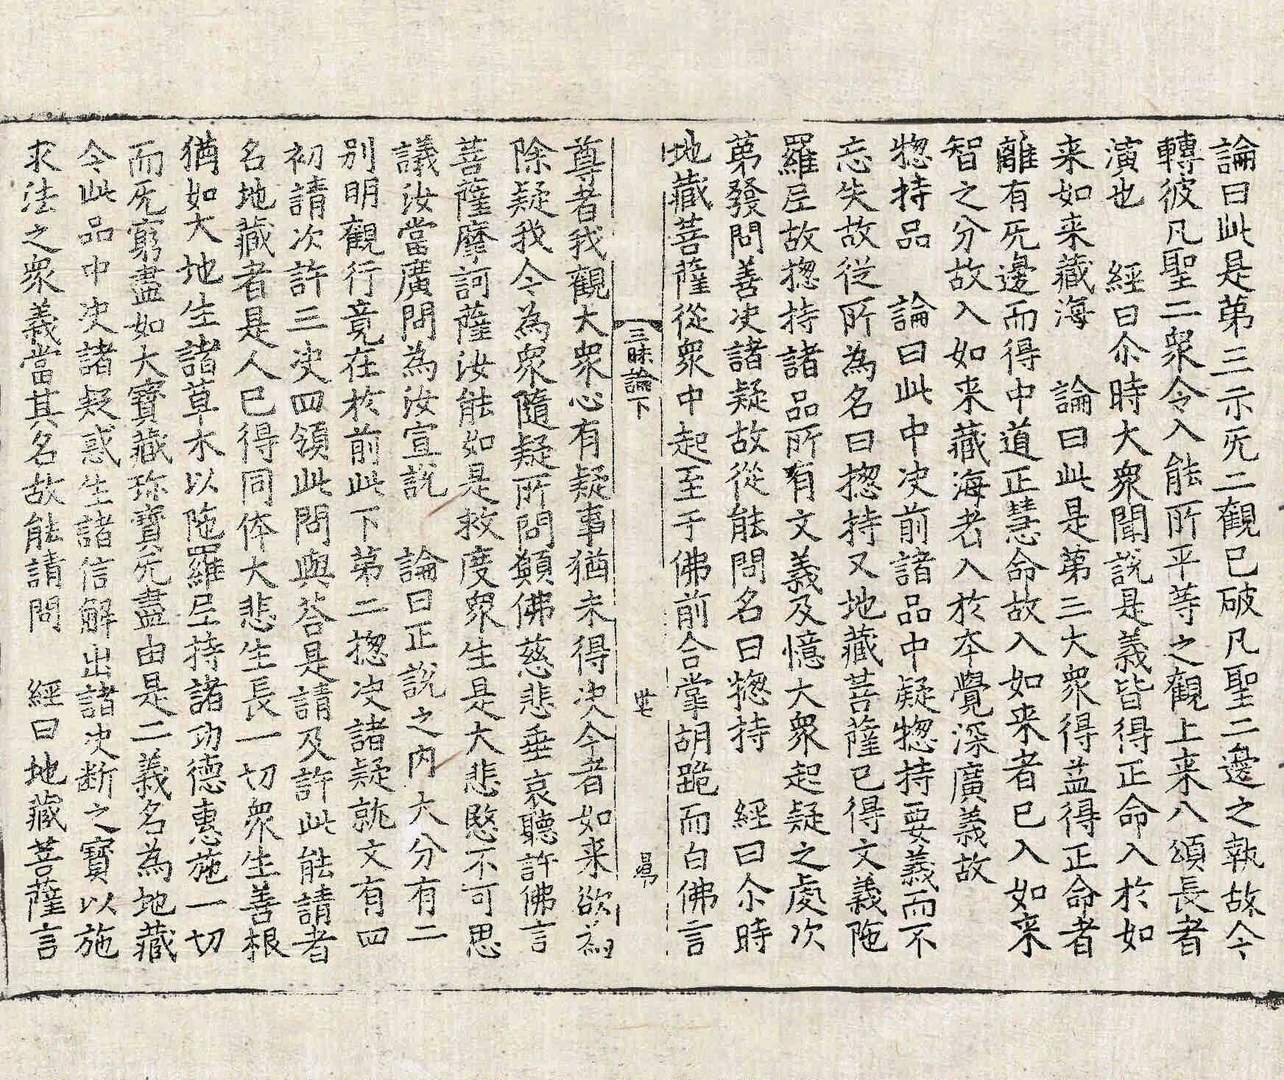 論曰此是第三示旡二觀已破凡聖二邊之執故今
轉彼凡聖二衆令入能所平等之觀上来八頌長者
演也　經曰尒時大衆聞說是義皆得正命入於如
来如来藏海　論曰此是第三大衆得益得正命者
離有旡邊而得中道正慧命故入如来者已入如来
智之分故入如来藏海者入於夲覺深廣義故
惣持品　論曰此中决前諸品中疑惣持要義而不
忘失故從所為名曰揔持又地藏菩薩已得文義陁
羅尼故揔持諸品所有文義及憶大衆起疑之處次
苐發問善决諸疑故從能問名曰惣持　經曰尒時
地藏菩薩從衆中起至于佛前合掌胡跪而白佛言
三昧論下
卄七
尊者我觀大衆心有疑事猶未得决今者如来欲為
除疑我今為衆隨疑所問願佛慈悲垂哀聽許佛言
菩薩摩訶薩汝能如是救度衆生是大悲愍不可思
議汝當廣問為汝宣說　論曰正說之內大分有二
別明觀行竟在於前此下第二揔决諸疑就文有四
初請次許三决四領此問與荅是請及許此能請者
名地藏者是人已得同体大悲生長一切衆生善根
猶如大地生諸草木以陁羅尼持諸功德惠施一切
而旡窮盡如大寶藏珎寶旡盡由是二義名為地藏
今此品中决諸疑惑生諸信解出諸决断之寶以施
求法之衆義當其名故能請問　經曰地藏菩薩言